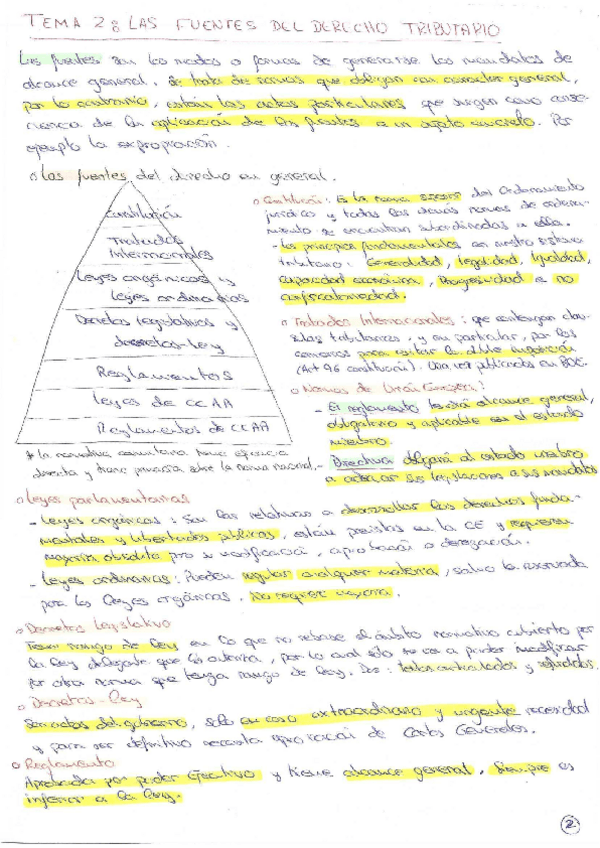 TEMA 2: LAS FUENTES DEL DERECHO TRIBUTARIO
Las fuentes son los modos o formas de generarse los mandatos de
alcance general. Se trata de normas que obligan con caracter general,
por lo contrario, estan los actos particulares que surgen como conse-
cuencia de la aplicación de las fuentes a un sujeto concreto. Por
ejemplo la expropiación.
o Las fuentes del derecho en general.
Constitución
Tratados
Internacionales
Leyes orgánicas y
leyes ordinarias
Decretos legislativos y
decretos-ley
Reglamentos
Leyes de CCAA
Reglamentos de CCAA
* La normativa comunitaria tiene eficacia
directa y tiene primacia sobre la norma nacional.
o Constitución: Es la norma del Ordenamiento
jurídico y todas las demás normas de ordena-
miento se encuentran subordinadas a ella.
- Los principios fundamentales en nuestro sistema
tributario: Generalidad, legalidad, Igualdad,
capacidad económica, Progresividad e no
confiscatoriedad.
o Tratados Internacionales: que contengan clau-
sulas tributarias, y en particular, por los
convenios para evitar la doble imposición
(Art 96 constitución). Una vez publicados en BOE.
o Normas de Unión Europea:
- El reglamento tendrá alcance general,
obligatorio y aplicable en el estado
miembro.
- Directiva obligará al estado miembro
a adecuar sus legislaciones a sus mandatos
o Leyes parlamentarias
- Leyes orgánicas: Son las relativas a desarrollar los derechos funda-
mentales y libertades públicas, están previstas en la CE y requieren
mayoría absoluta para su modificación, aprobación o derogación.
- Leyes ordinarias: Pueden regular cualquier materia, salvo la reservada
para las leyes orgánicas. No requiere mayoría.
o Decretos Legislativo
Tienen rango de ley en lo que no rebase el ámbito normativo cubierto por
la ley delegante que los autoriza, por lo cual sólo se va a poder modificar
por otra norma que tenga rango de ley. Dos: textos articulados y refundidos.
o Decretos-ley
Son actos del gobierno, sólo en caso extraordinario y urgente necesidad
y para ser definitivo necesita aprobación de Cortes Generales.
o Reglamento
Aprobada por poder Ejecutivo y tiene alcance general, siempre es
inferior a la ley.
2